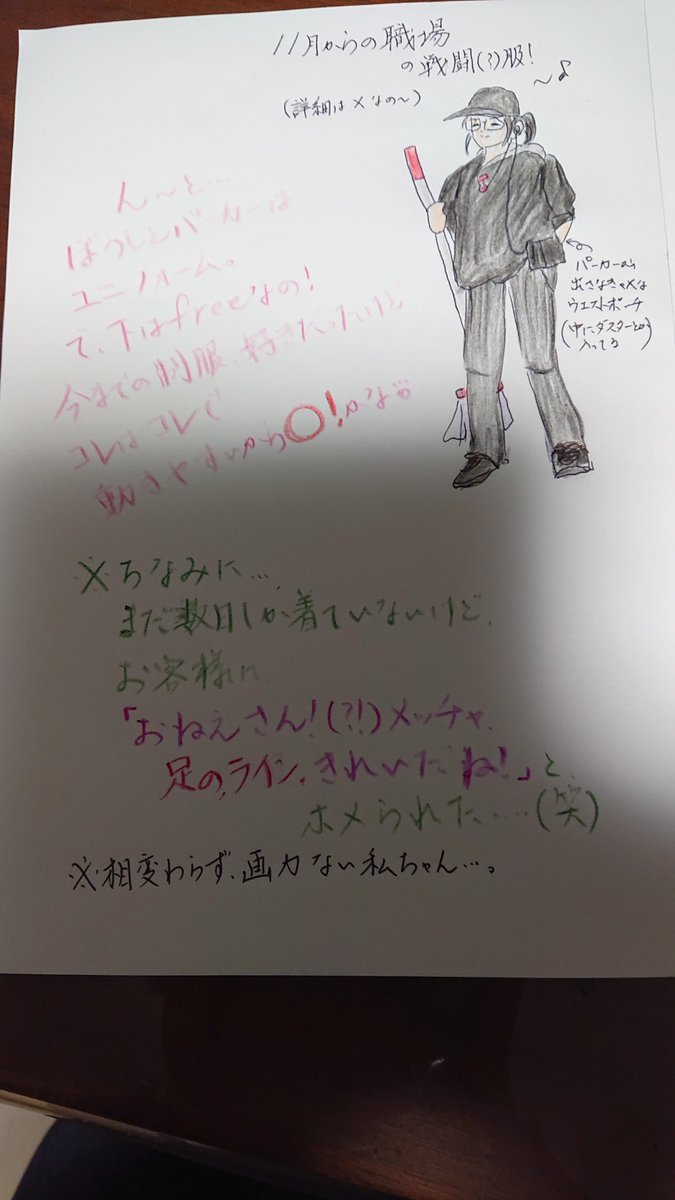 11月からの職場
の戦闘(?)服!
(詳細は×なの〜)
〜♪
ん〜と…
ぼうしとパーカーは
ユニフォーム。
で、下はfreeなの!
今までの制服、好きだったけど
コレはコレで
動きやすいから〇!かな
パーカーから
出さなきゃ×な
ウエストポーチ
(中にダスターとか
入ってる)
※ちなみに…
まだ数日しか着ていないけど、
お客様に
「おねえさん!(?!)メッチャ、
足の、ライン、きれいだね!」と、
ホメられた……(笑)
※相変わらず、画力ない私ちゃん…。